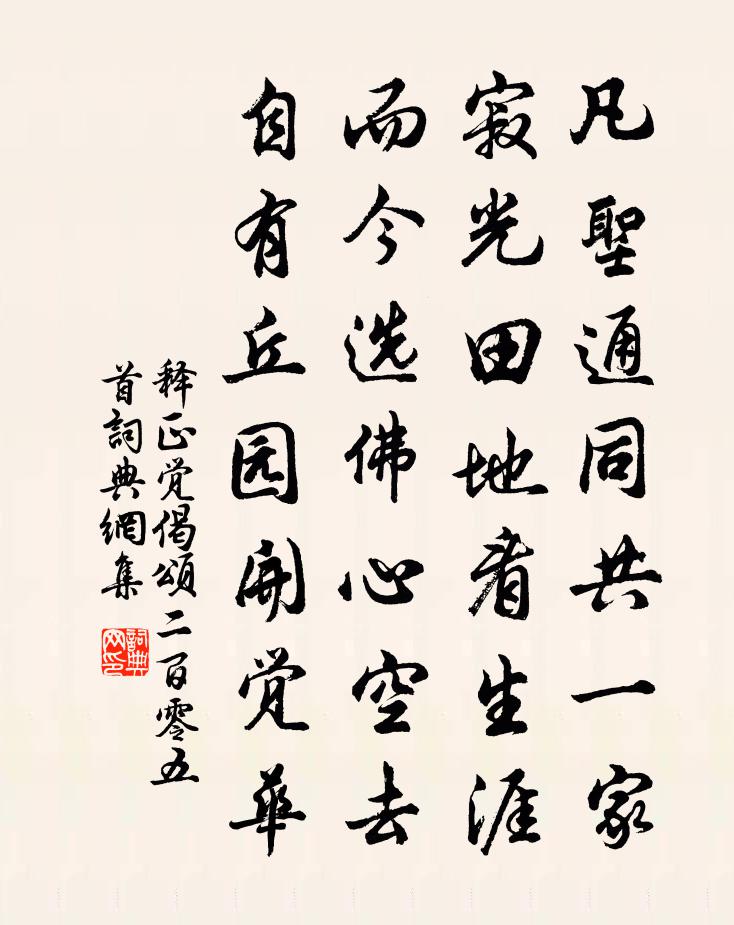 凡聖通同共一家
寂光田地看生涯
而今选佛心空去
自有丘园開觉華
释正觉偈頌二百零五
首詞典網集
詞典
网印